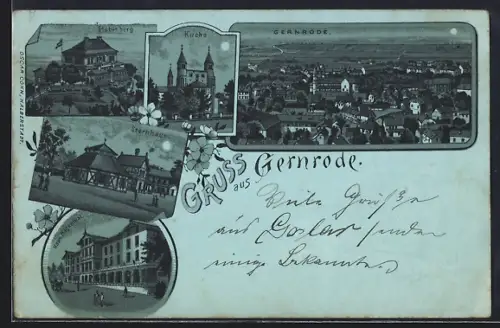 Stubenberg
Kirche
GERNRODE.
OSCAR COHN, HALBERSTADT.
Sternhaus
GRUSS
aus Gernrode.
Viele Grüße
aus Goslar senden
einige Bekannte.